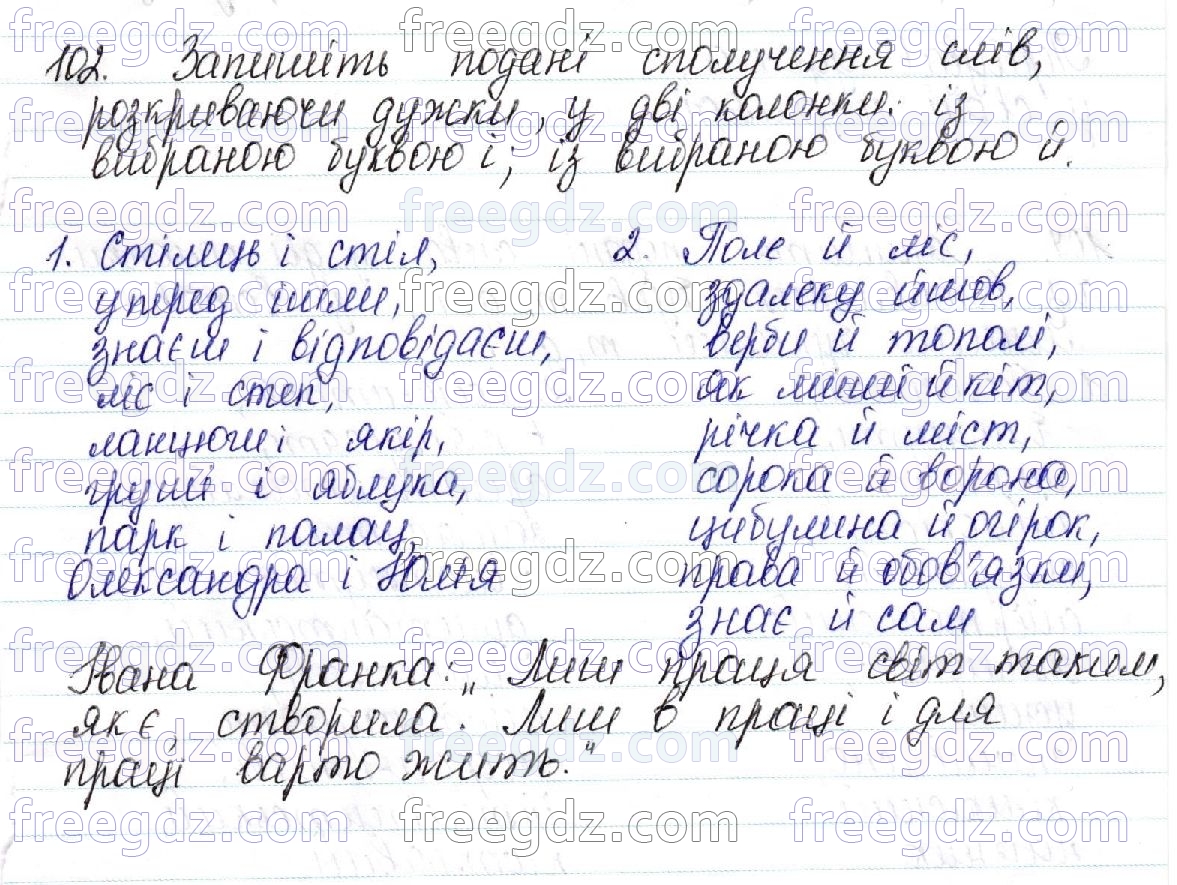 102. Запишіть подані сполучення слів,
розкриваючи дужки, у дві колонки: із
вибраною буквою і; із вибраною буквою й.
1. Стілець і стіл,
уперед ішли,
знаєш і відповідаєш,
ліс і степ,
ланцюг і якір,
груші і яблука,
парк і палац,
Олександра і Юлія
2. Поле й ліс,
здалеку йшов,
верби й тополі,
як миші й кіт,
річка й міст,
сорока й ворона,
цибулина й огірок,
права й обов'язки,
знає й сам
Івана Франка: „Лиш праця світ таким,
як є, створила. Лиш в праці і для
праці варто жить."
freegdz.com